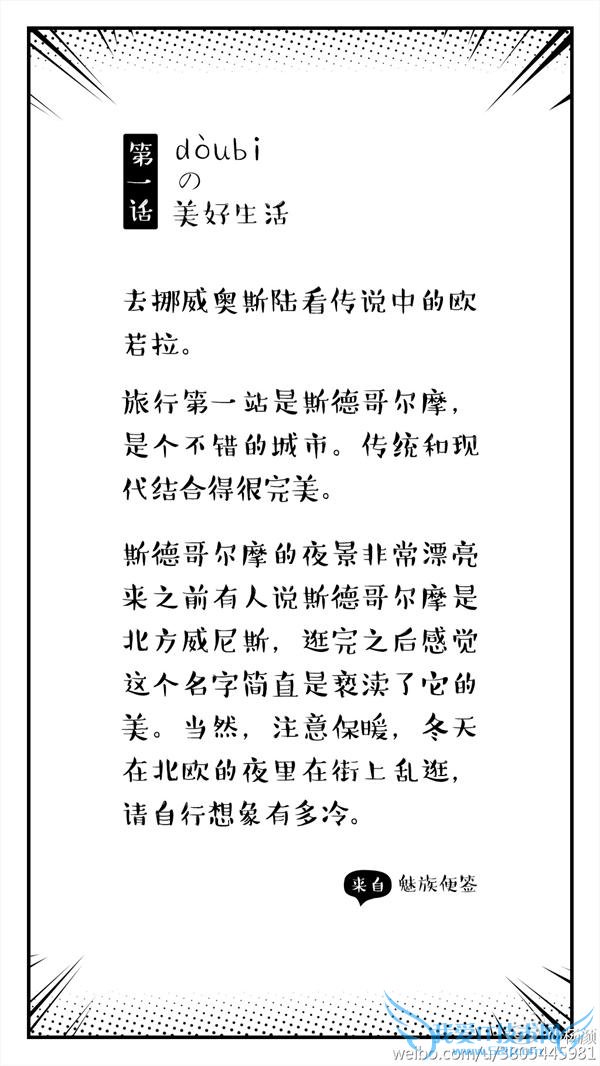 第一话
dòubi
の
美好生活
去挪威奥斯陆看传说中的欧
若拉。
旅行第一站是斯德哥尔摩，
是个不错的城市。传统和现
代结合得很完美。
斯德哥尔摩的夜景非常漂亮
来之前有人说斯德哥尔摩是
北方威尼斯，逛完之后感觉
这个名字简直是亵渎了它的
美。当然，注意保暖，冬天
在北欧的夜里在街上乱逛，
请自行想象有多冷。
来自 魅族便签
weibo.com/u/3805445981